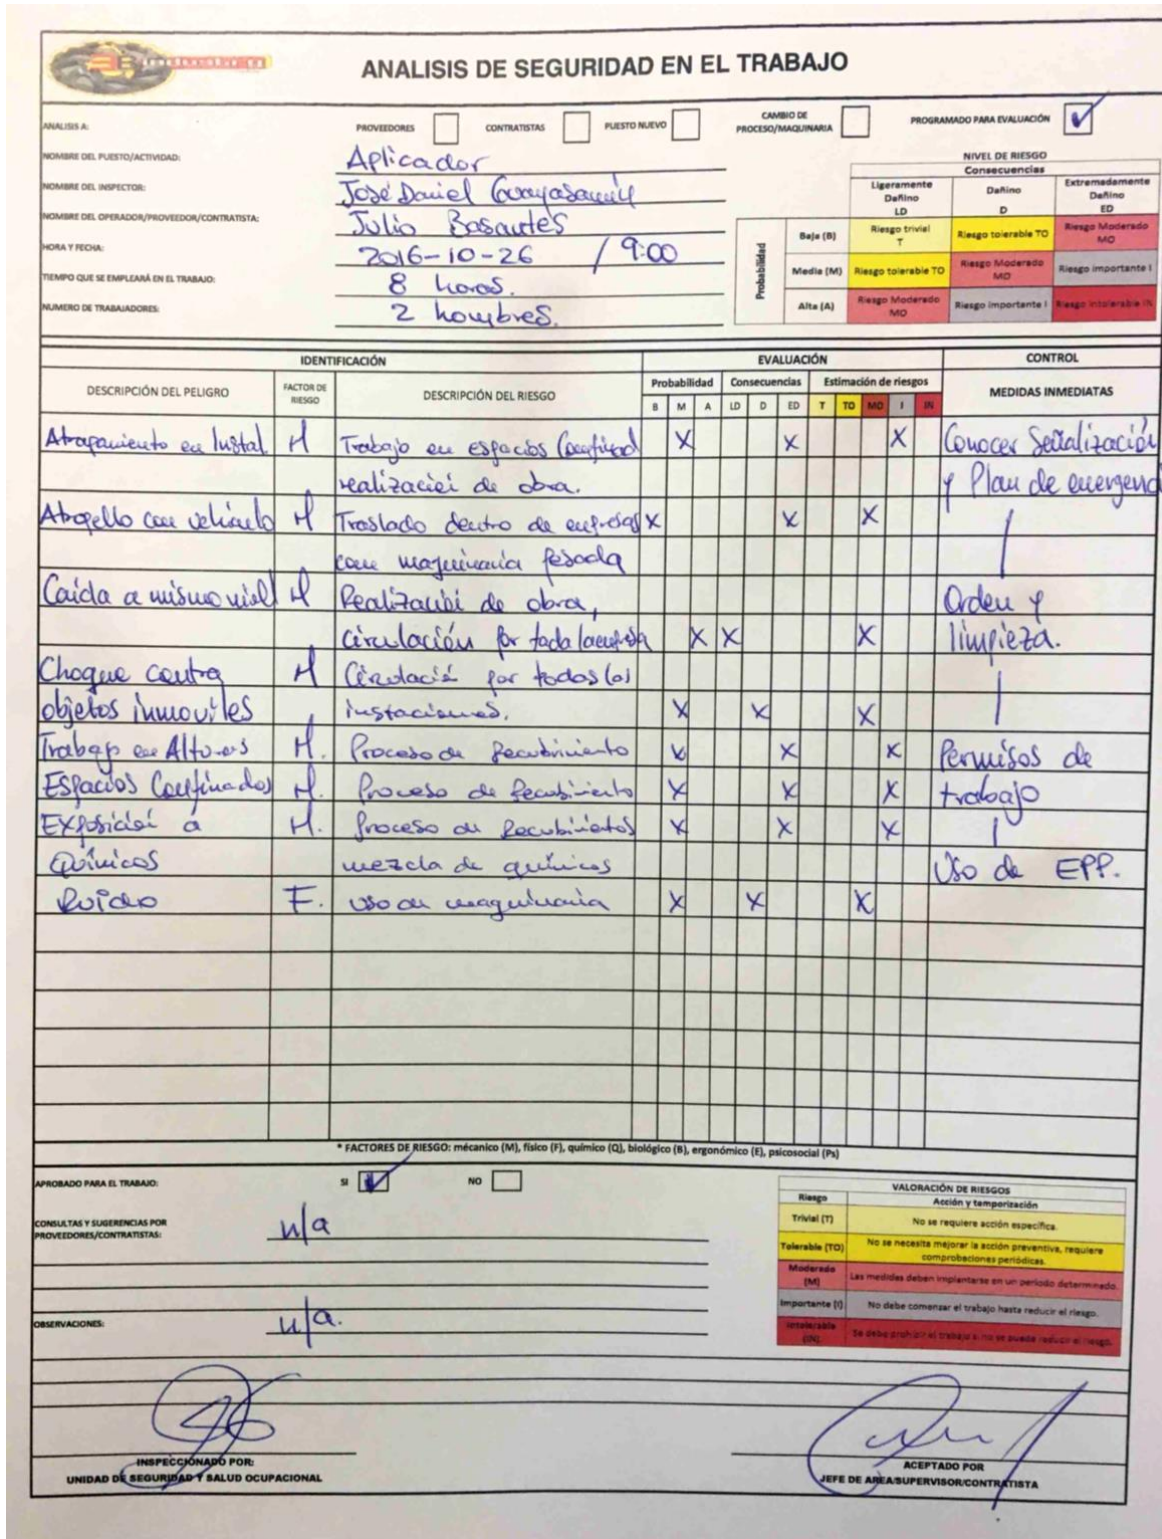 ANALISIS DE SEGURIDAD EN EL TRABAJO
ANALISIS A:
PROVEEDORES
CONTRATISTAS
PUESTO NUEVO
CAMBIO DE PROCESO/MAQUINARIA
PROGRAMADO PARA EVALUACIÓN ✓
NOMBRE DEL PUESTO/ACTIVIDAD: Aplicador
NOMBRE DEL INSPECTOR: José Daniel
NOMBRE DEL OPERADOR/PROVEEDOR/CONTRATISTA: Julio Basantes
HORA Y FECHA: 2016-10-26 / 9:00
TIEMPO QUE SE EMPLEARÁ EN EL TRABAJO: 8 horas.
NUMERO DE TRABAJADORES: 2 hombres.
NIVEL DE RIESGO
Consecuencias
Probabilidad
Ligeramente Dañino LD
Dañino D
Extremadamente Dañino ED
Baja (B) Riesgo trivial T Riesgo tolerable TO Riesgo Moderado MO
Media (M) Riesgo tolerable TO Riesgo Moderado MO Riesgo importante I
Alta (A) Riesgo Moderado MO Riesgo importante I Riesgo intolerable IN
IDENTIFICACIÓN EVALUACIÓN CONTROL
DESCRIPCIÓN DEL PELIGRO FACTOR DE RIESGO DESCRIPCIÓN DEL RIESGO Probabilidad Consecuencias Estimación de riesgos MEDIDAS INMEDIATAS
B M A LD D ED T TO MO I IN
Atrapamiento en Instal M Trabajo en espacios Confinad X X X Conocer Señalización
realización de obra. y Plan de emergenci
Atropello con vehículo M Traslado dentro de empresas X X X
con maquinaria pesada
Caída a mismo nivel M Realización de obra, Orden y
circulación por toda la empresa X X X limpieza.
Choque contra M Circulación por todas las
objetos inmoviles instaciones. X X X
Trabajo en Alturas M. Proceso de Recubrimiento X X X Permisos de
Espacios Confinados M. Proceso de Recubrimiento X X X trabajo
Exposición a M. Proceso de Recubrimientos X X X
Químicos mezcla de químicos Uso de EPP.
Ruido F. uso de maquinaria X X X
* FACTORES DE RIESGO: mécanico (M), físico (F), químico (Q), biológico (B), ergonómico (E), psicosocial (Ps)
APROBADO PARA EL TRABAJO: SI ✓ NO
CONSULTAS Y SUGERENCIAS POR PROVEEDORES/CONTRATISTAS: n/a
OBSERVACIONES: n/a.
VALORACIÓN DE RIESGOS
Riesgo Acción y temporización
Trivial (T) No se requiere acción específica.
Tolerable (TO) No se necesita mejorar la acción preventiva, requiere comprobaciones periódicas.
Moderado (M) Las medidas deben implantarse en un periodo determinado.
Importante (I) No debe comenzar el trabajo hasta reducir el riesgo.
Intolerable (IN) Se debe prohibir el trabajo si no se puede reducir el riesgo.
INSPECCIONADO POR:
UNIDAD DE SEGURIDAD Y SALUD OCUPACIONAL
ACEPTADO POR
JEFE DE AREA/SUPERVISOR/CONTRATISTA